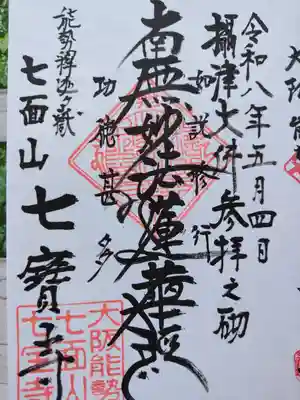 令和八年五月四日
攝津大佛参拝之砌
如説修行
南無妙法蓮華経
功徳甚多
能勢禅地ヶ嶽
七面山七寶寺
大阪能勢
七面山
七宝寺